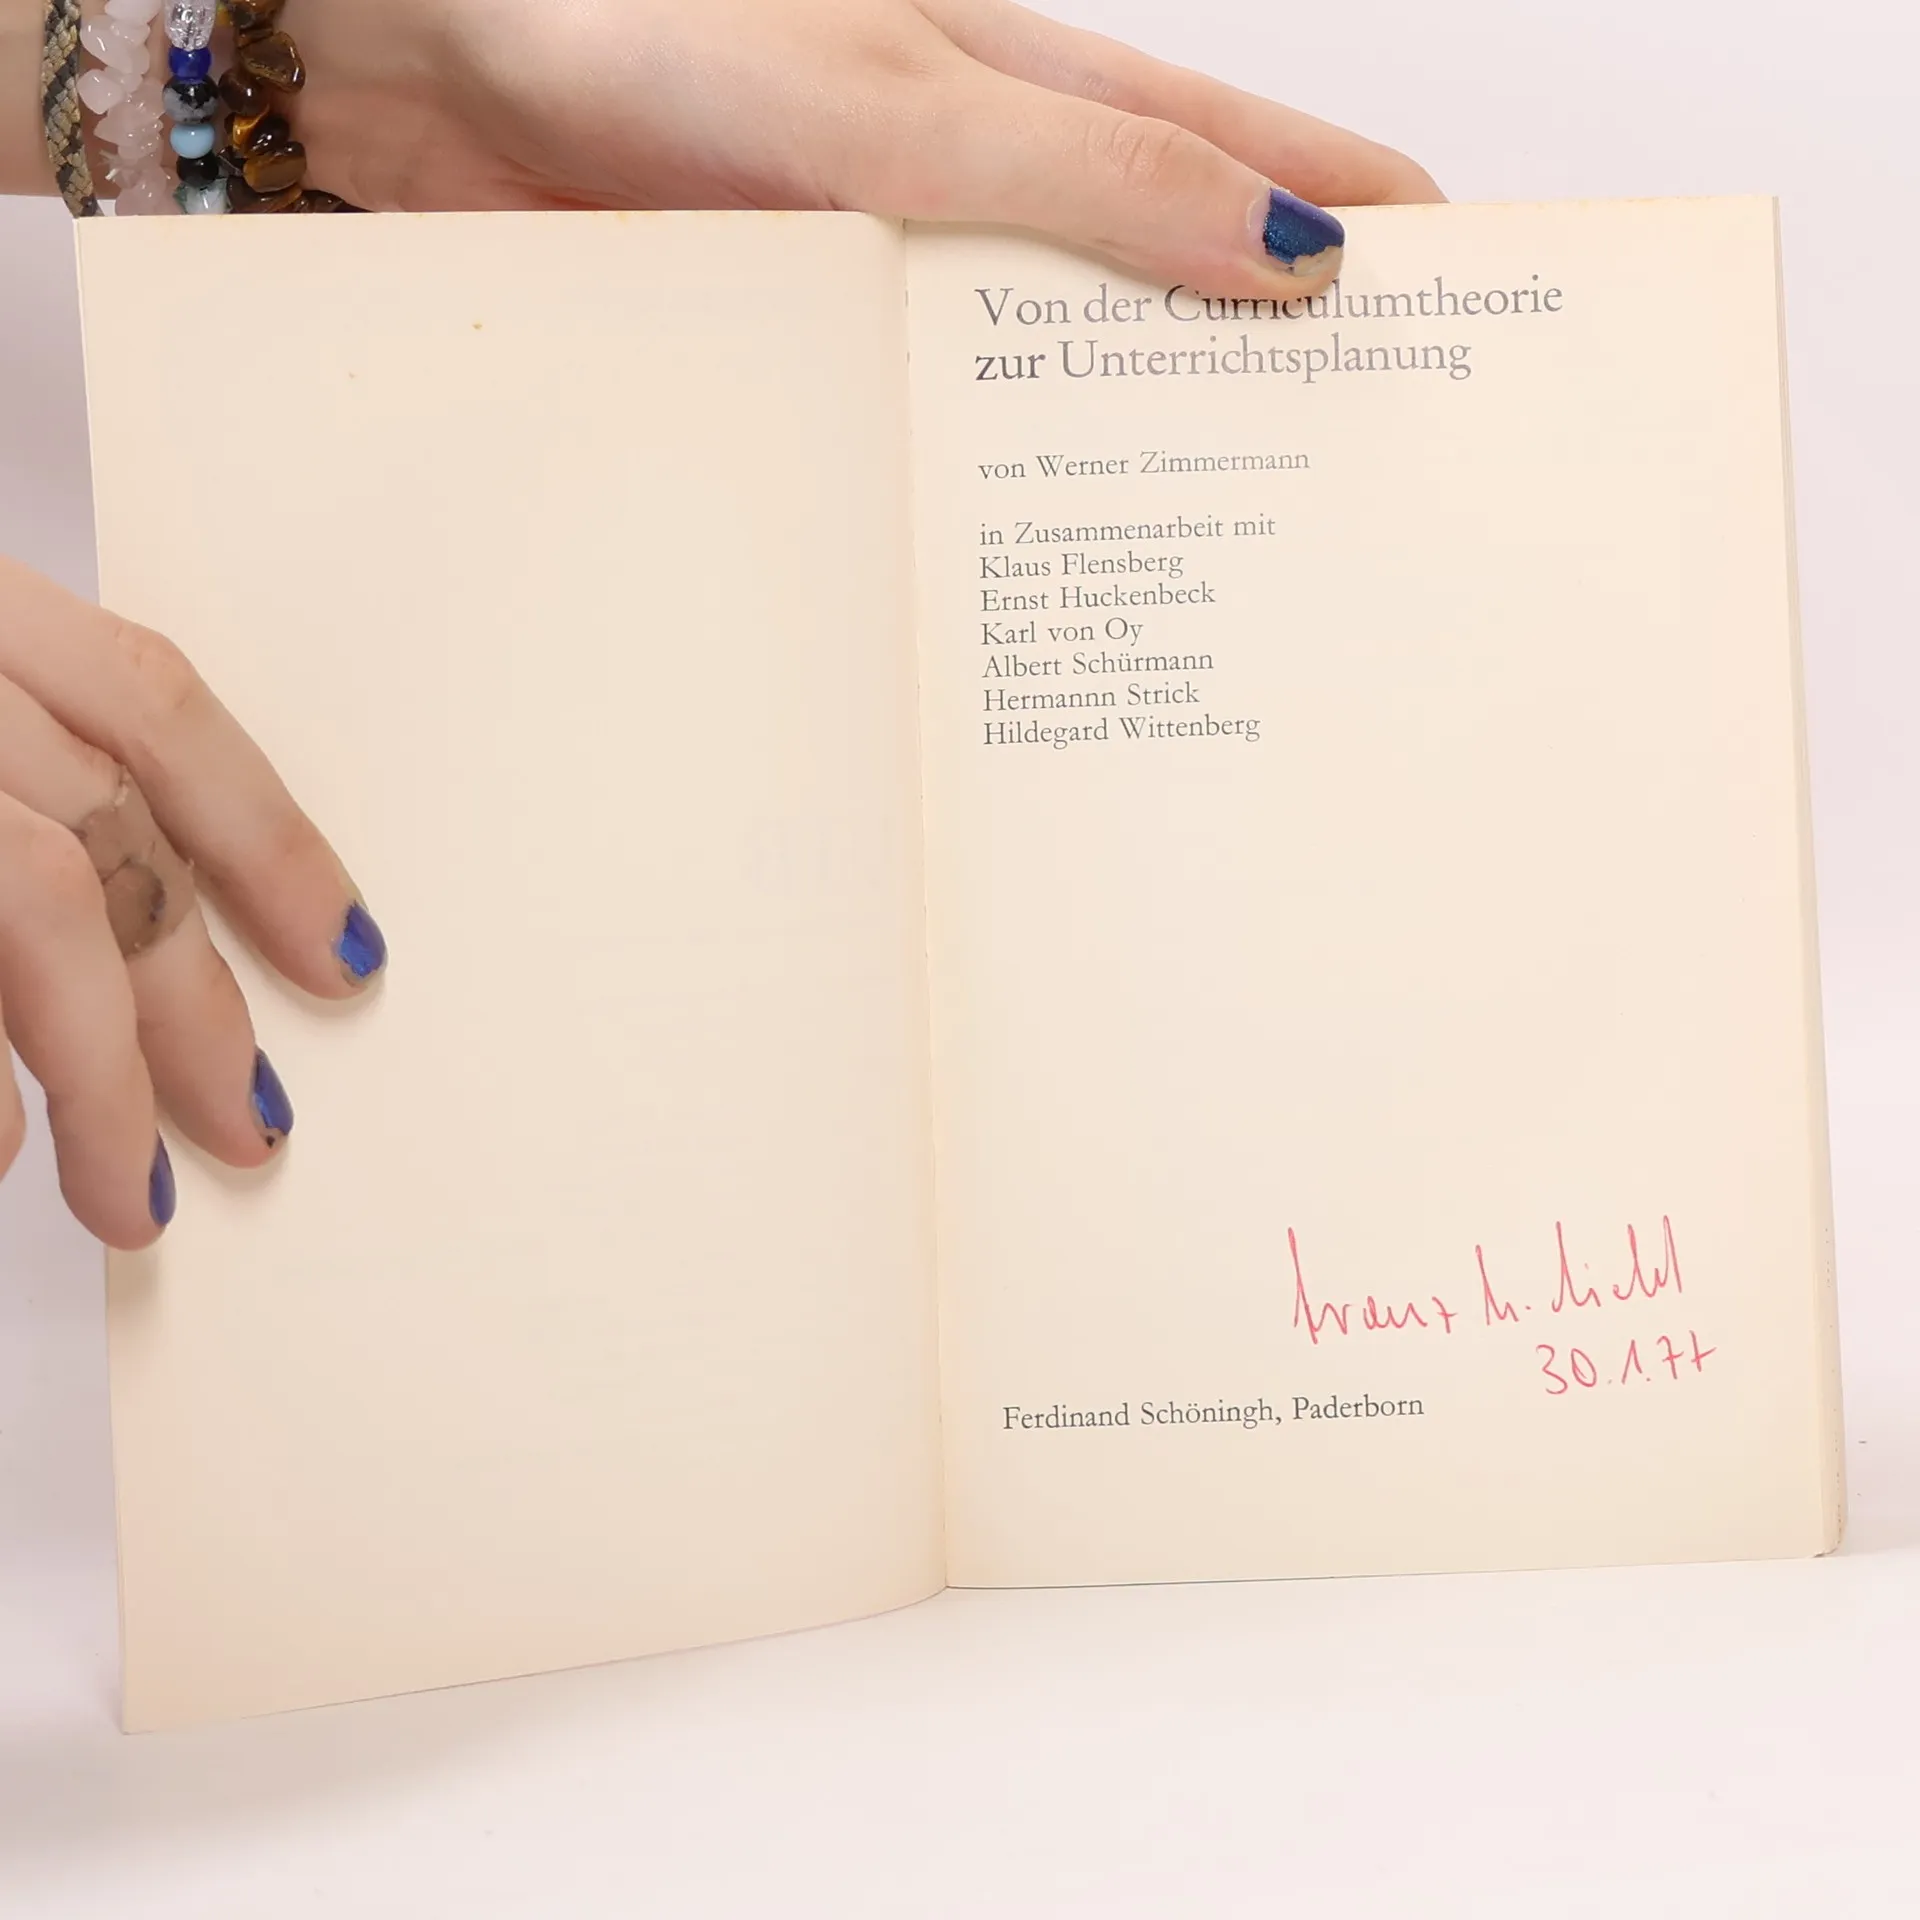 Von der Curriculumtheorie
zur Unterrichtsplanung
von Werner Zimmermann
in Zusammenarbeit mit
Klaus Flensberg
Ernst Huckenbeck
Karl von Oy
Albert Schürmann
Hermannn Strick
Hildegard Wittenberg
30.1.77
Ferdinand Schöningh, Paderborn